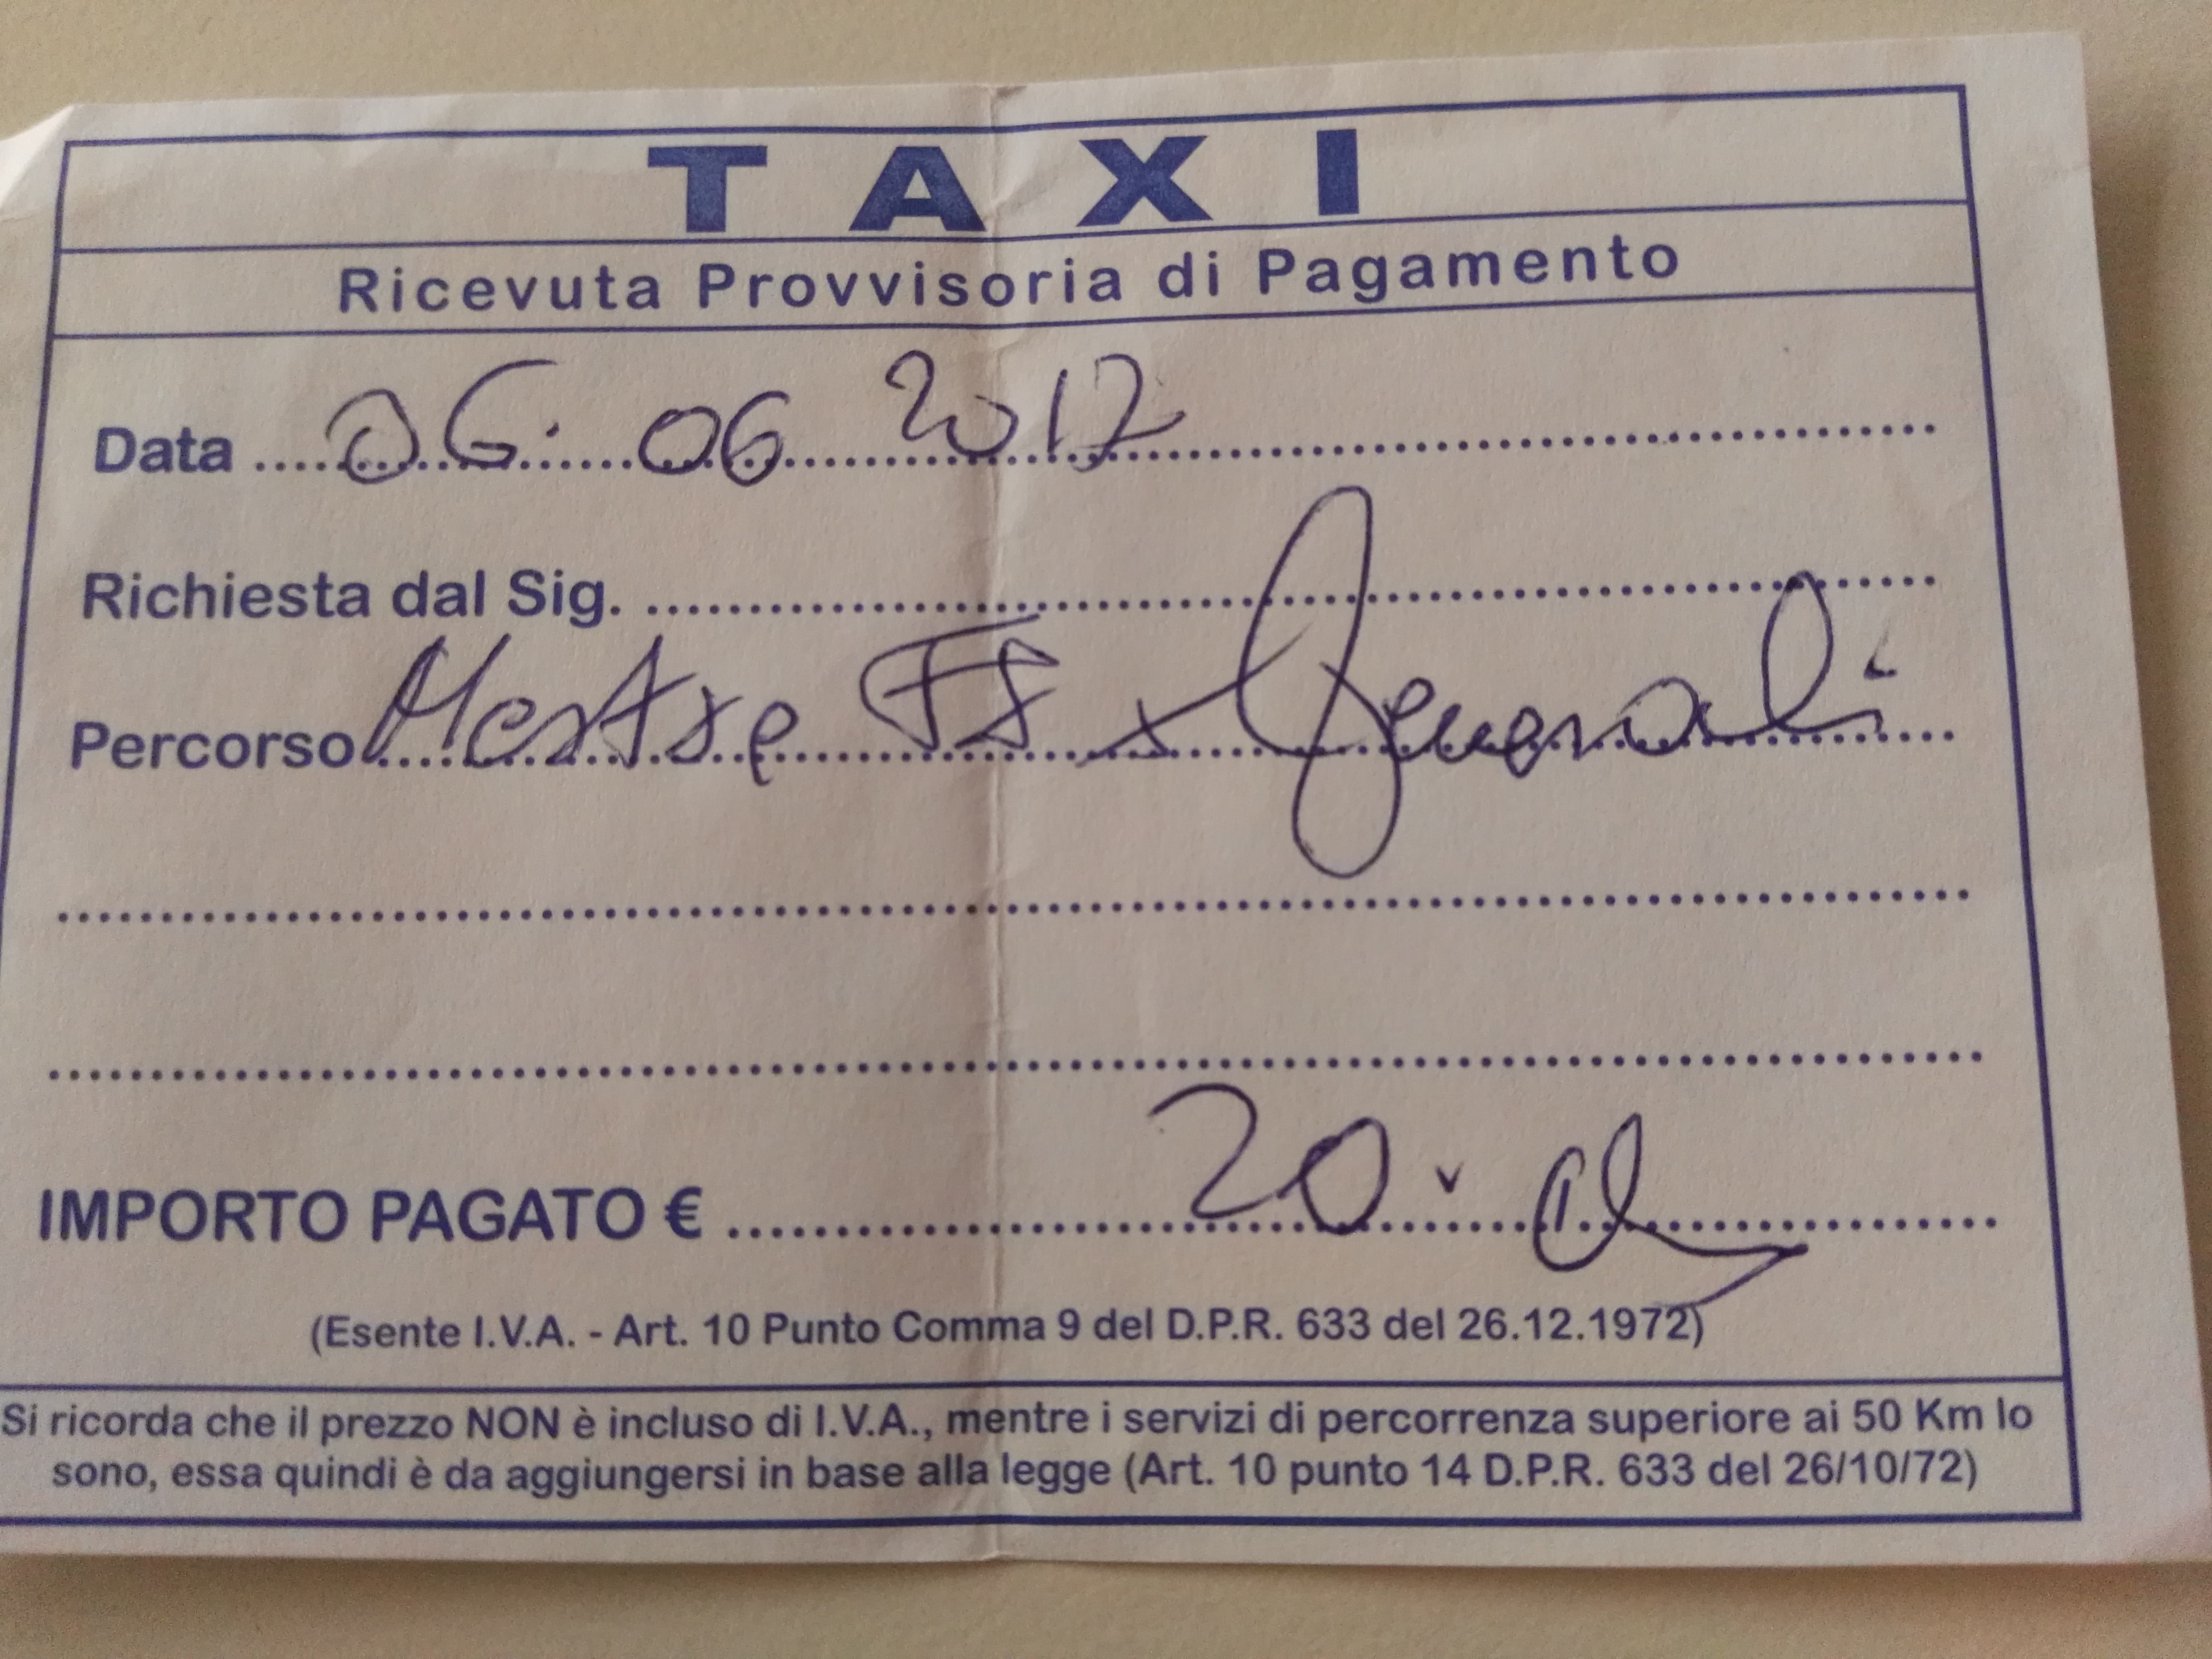 TAXI
Ricevuta Provvisoria di Pagamento
Data 06. 06 2017
Richiesta dal Sig.
Percorso Mestre FS x Generali
IMPORTO PAGATO € 20
(Esente I.V.A. - Art. 10 Punto Comma 9 del D.P.R. 633 del 26.12.1972)
Si ricorda che il prezzo NON è incluso di I.V.A., mentre i servizi di percorrenza superiore ai 50 Km lo
sono, essa quindi è da aggiungersi in base alla legge (Art. 10 punto 14 D.P.R. 633 del 26/10/72)